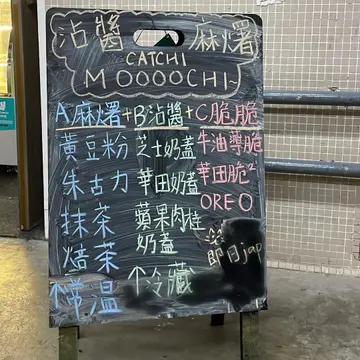 沾醬 麻糬
CATCHI
MOOOOCHI
A麻糬+B沾醬+C脆脆
黃豆粉 芝士奶蓋 牛油薄脆
朱古力 華田奶蓋 華田脆²
抹茶 蘋果肉桂奶蓋 OREO
焙茶 即日jap
↑常溫 ↑冷藏